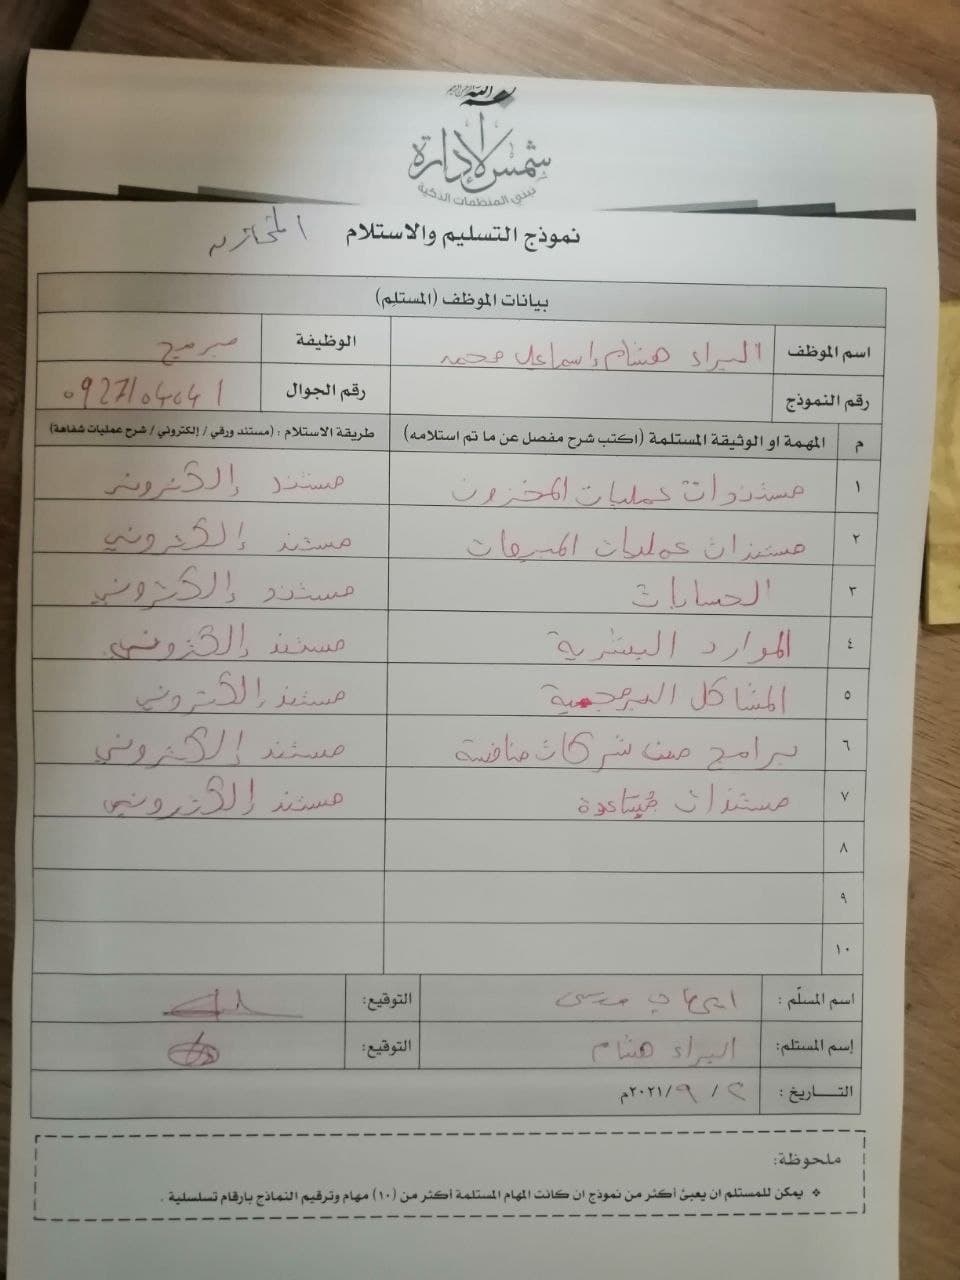 بسم الله الرحمن الرحيم
شمس الإدارة
نبني المنظمات الذكية
نموذج التسليم والاستلام المخازن
بيانات الموظف (المستلم)
اسم الموظف البراء هشام إسماعيل محمد الوظيفة مبرمج
رقم النموذج رقم الجوال
م المهمة او الوثيقة المستلمة (اكتب شرح مفصل عن ما تم استلامه) طريقة الاستلام : (مستند ورقي / إلكتروني / شرح عمليات شفاهة)
١ مستندوات عمليات المخزون مستند إلكتروني
٢ مستندات عمليات المبيعات مستند إلكتروني
٣ الحسابات مستند إلكتروني
٤ الموارد البشرية مستند إلكتروني
٥ المشاكل البرمجية مستند إلكتروني
٦ برامج من شركات منافسة مستند إلكتروني
٧ مستندات مساعدة مستند إلكتروني
٨
٩
١٠
اسم المسلّم : التوقيع:
إسم المستلم: البراء هشام التوقيع:
التـــاريخ : ٢ / ٩ /٢٠٢١م
ملحوظة:
❖ يمكن للمستلم ان يعبئ أكثر من نموذج ان كانت المهام المستلمة أكثر من (١٠) مهام وترقيم النماذج بارقام تسلسلية .